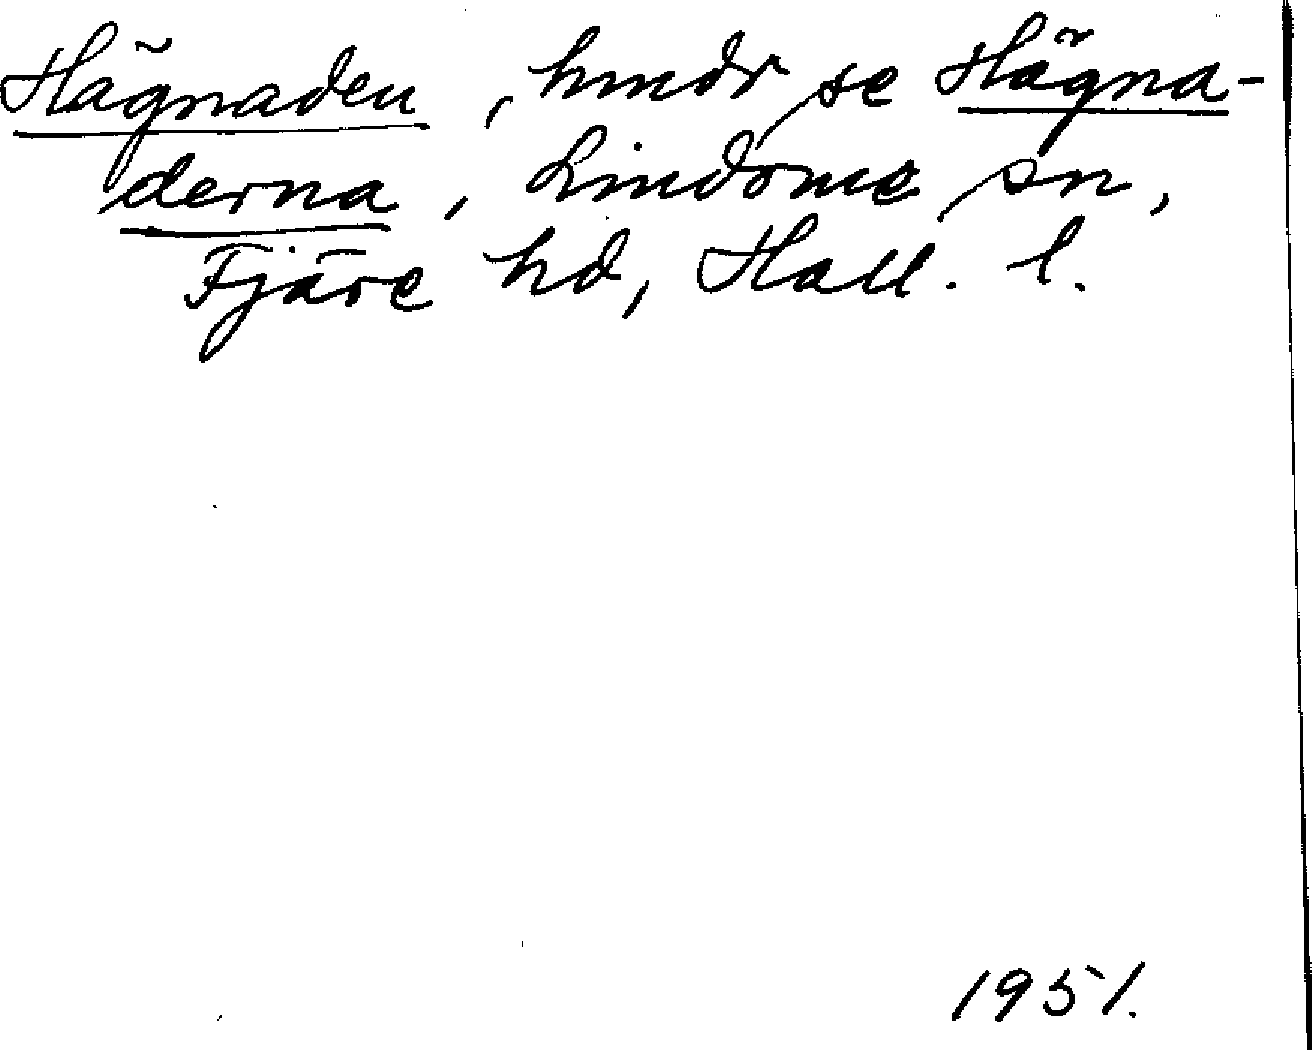 Hägnaden, hmdr se Hägna-
derna, Lindome sn,
Fjäre hd, Hall. l.
1951.